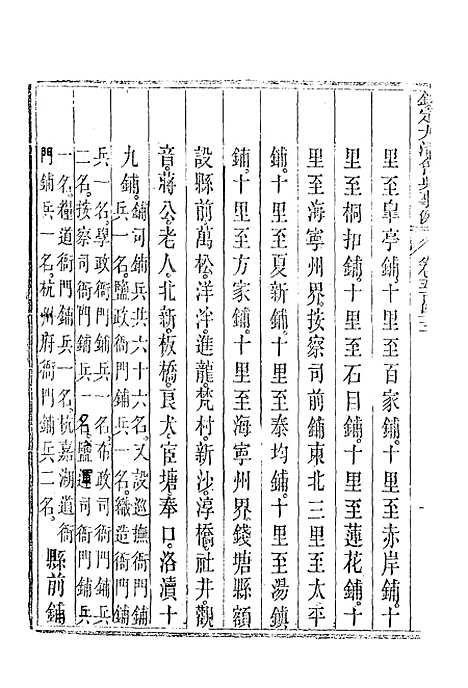 欽定大清會典事例
里至皐亭鋪。十里至百家鋪。十里至赤岸鋪。十
里至桐扣鋪。十里至石目鋪。十里至蓮花鋪。十
里至海寧州界。按察司前鋪東北三里至太平
鋪。十里至夏新鋪。十里至泰均鋪。十里至湯鎮
鋪。十里至方家鋪。十里至海寧州界。錢塘縣額
設縣前萬松。洋泮。進龍。梵村。新沙。淳橋。社井。觀
音。蔣公。老人。北新。板橋。良犬。宦塘。奉口。洛瀆十
九鋪。鋪司鋪兵共六十六名。又設巡撫衙門鋪
兵一名。鹽政衙門鋪兵一名。織造衙門鋪
兵一名。學政衙門鋪兵一名。布政司衙門鋪兵
二名。按察司衙門鋪兵一名。鹽運司衙門鋪兵
一名。糧道衙門鋪兵一名。杭嘉湖道衙
門鋪兵一名。杭州府衙門鋪兵二名。縣前鋪